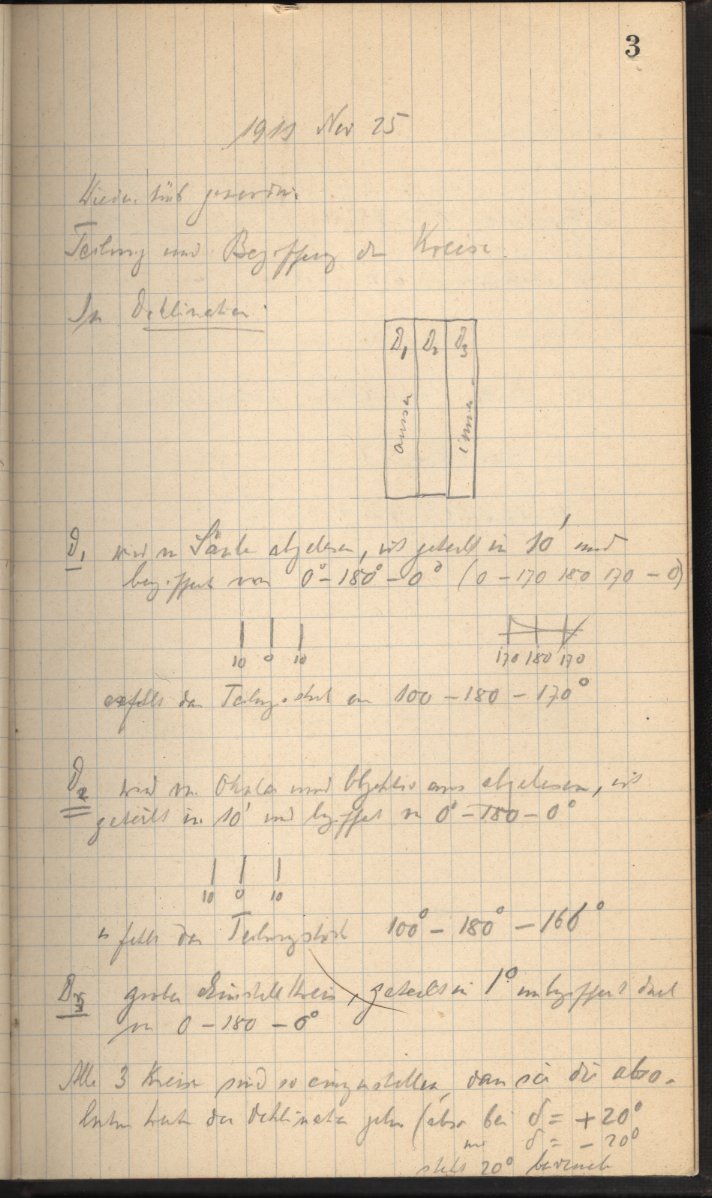 3
Nov 25
Teilung und Bezifferung der Kreise.
In Deklination.
D₁ D₂ D₃
aussen innen
D₁ abgelesen, ist geteilt in 10' und
beziffert von 0° – 180° – 0° (0 – 170 180 170 – 0)
10 0 10
170 180 170
das 100 – 180 – 170°
D₂ wird von Okular und Objektiv aus abgelesen, ist
geteilt in 10' und beziffert von 0° – 180 – 0°
10 0 10
fehlt das Teilungsstück 100° – 180° – 166°
D₃ grober Einstellkreis, geteilt in 1°
von 0 – 180 – 0°
Alle 3 Kreise sind so einzustellen, dass sie die abso-
luten Werte der Deklination geben (also bei δ = +20°
und δ = – 20°
stets 20°